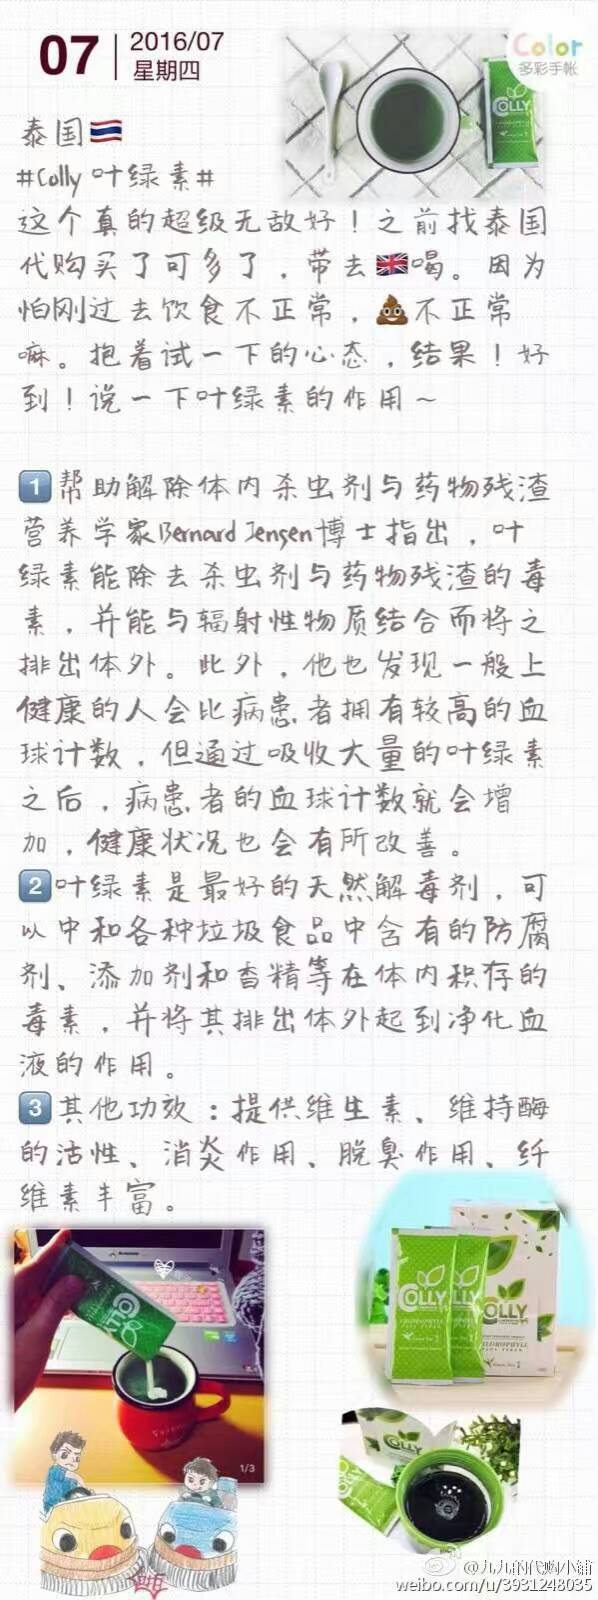 07
2016/07
星期四
Color
多彩手帐
COLLY
泰国🇹🇭
#Colly 叶绿素#
这个真的超级无敌好！之前找泰国
代购买了可多了，带去🇬🇧喝。因为
怕刚过去饮食不正常，💩不正常
嘛。抱着试一下的心态，结果！好
到！说一下叶绿素的作用～
1 帮助解除体内杀虫剂与药物残渣
营养学家Bernard Jensen博士指出，叶
绿素能除去杀虫剂与药物残渣的毒
素，并能与辐射性物质结合而将之
排出体外。此外，他也发现一般上
健康的人会比病患者拥有较高的血
球计数，但通过吸收大量的叶绿素
之后，病患者的血球计数就会增
加，健康状况也会有所改善。
2 叶绿素是最好的天然解毒剂，可
以中和各种垃圾食品中含有的防腐
剂、添加剂和香精等在体内积存的
毒素，并将其排出体外起到净化血
液的作用。
3 其他功效：提供维生素、维持酶
的活性、消炎作用、脱臭作用、纤
维素丰富。
COLLY
COLLY
COLLY
CHLOROPHYLL
1/3
COLLY
@九九的代购小铺
weibo.com/u/3931248035